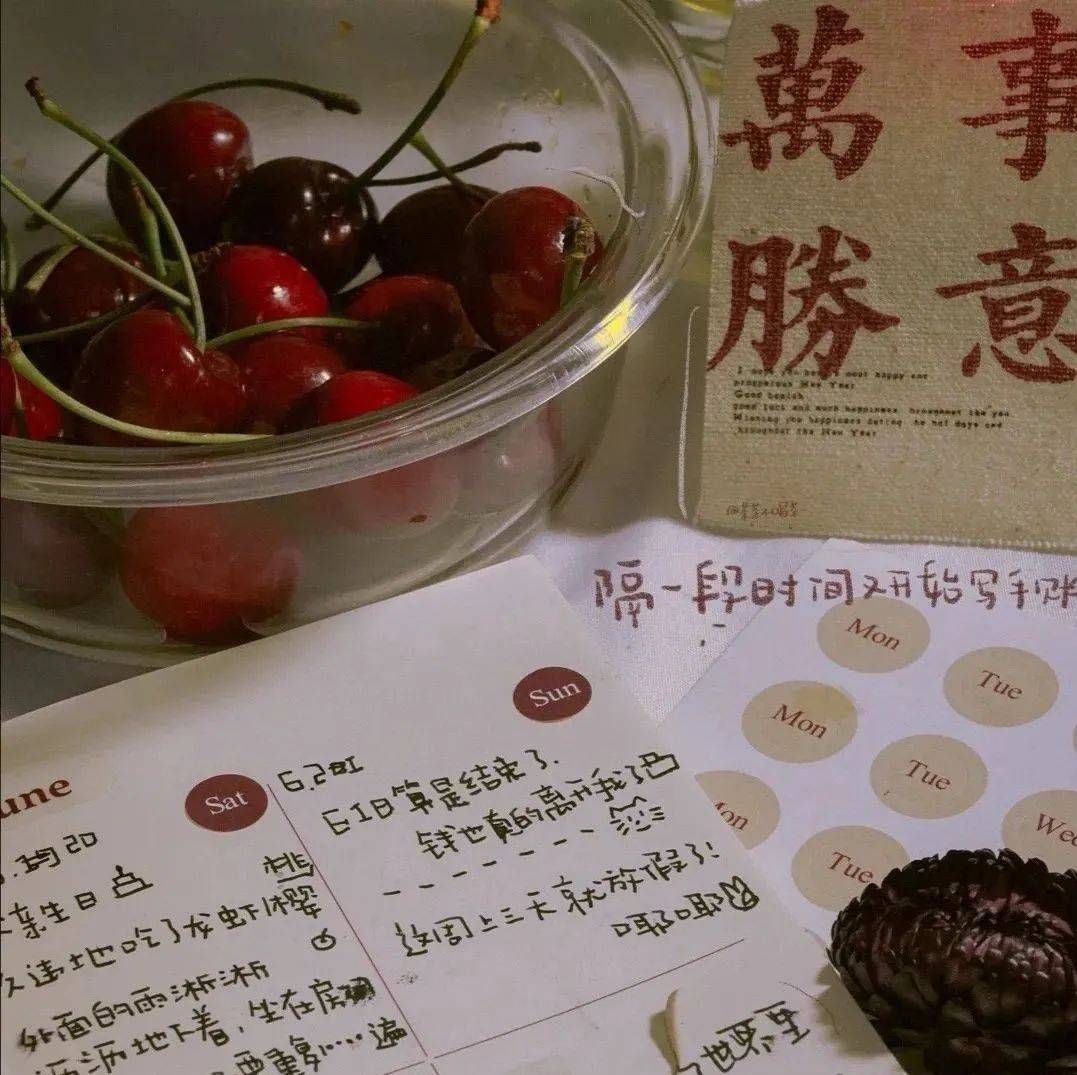 萬事
勝意
prosperous New Year
Good health
Good luck and much happiness throughout the you
Winning you happiness during he hot days and
throughout the New Year
隔一段时间又开始写手账
Mon
Tue
Mon
Tue
Mon
Tue
Wed
une
Sat
20
亲生日
久违地吃了龙虾樱
桃
外面的雨淅淅
沥沥地下着，坐在房
要重复……遍
Sun
6.2日
618算是结束了.
钱也真的离开我了
------
这周上三天就放假了!
耶耶